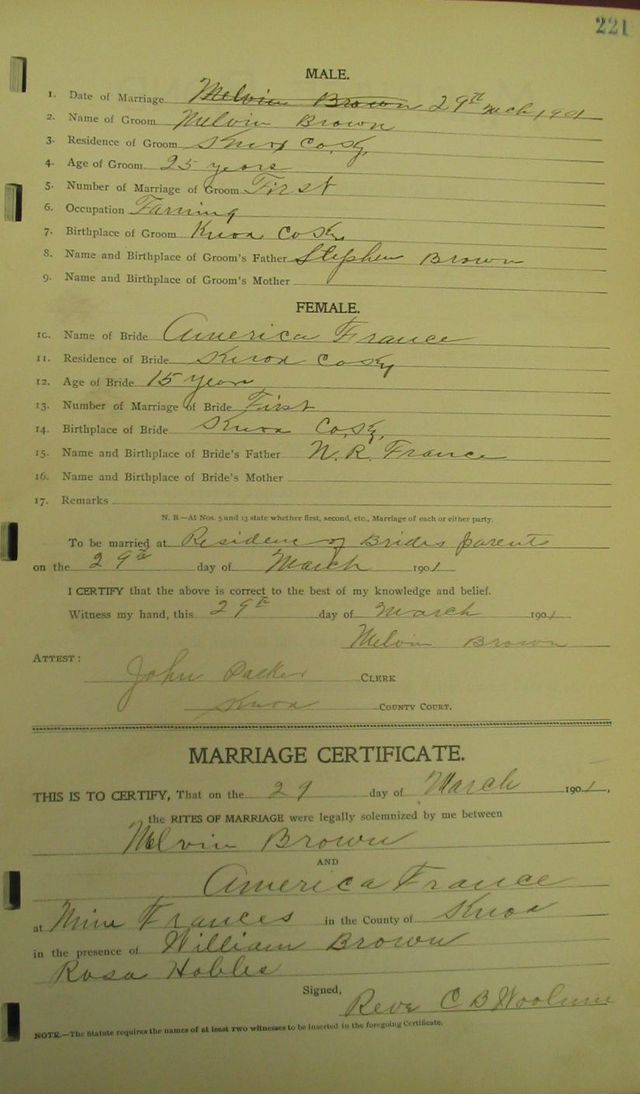 221
MALE.
1. Date of Marriage Melvin Brown 29th Mch 1901
2. Name of Groom Melvin Brown
3. Residence of Groom Knox Co. Ky.
4. Age of Groom 25 years
5. Number of Marriage of Groom First
6. Occupation Farming
7. Birthplace of Groom Knox Co Ky.
8. Name and Birthplace of Groom's Father Stephen Brown
9. Name and Birthplace of Groom's Mother
FEMALE.
10. Name of Bride America France
11. Residence of Bride Knox Co Ky
12. Age of Bride 15 years
13. Number of Marriage of Bride First
14. Birthplace of Bride Knox Co. Ky.
15. Name and Birthplace of Bride's Father N. R. France
16. Name and Birthplace of Bride's Mother
17. Remarks
N. B.—At Nos. 5 and 13 state whether first, second, etc., Marriage of each or either party.
To be married at Residence of Brides parents
on the 29th day of March 1901
I CERTIFY that the above is correct to the best of my knowledge and belief.
Witness my hand, this 29th day of March 1901
Melvin Brown
ATTEST:
John Parker CLERK
Knox COUNTY COURT.
MARRIAGE CERTIFICATE.
THIS IS TO CERTIFY, That on the 29 day of March 1901,
the RITES OF MARRIAGE were legally solemnized by me between
Melvin Brown
AND
America France
at Frances in the County of Knox
in the presence of William Brown
Rosa Hobbs
Signed,
Rev. C B Woolum
NOTE.—The Statute requires the names of at least two witnesses to be inserted in the foregoing Certificate.